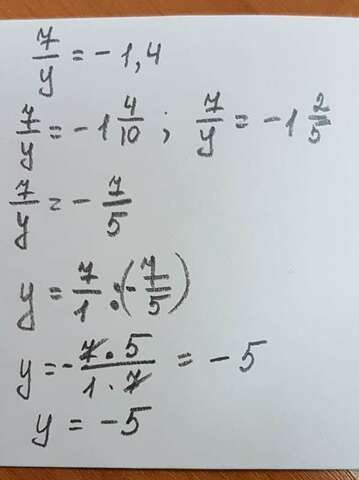 7/y = -1,4
7/y = -1 4/10 ; 7/y = -1 2/5
7/y = - 7/5
y = 7/1 : (- 7/5)
y = - 7·5/1·7 = -5
y = -5